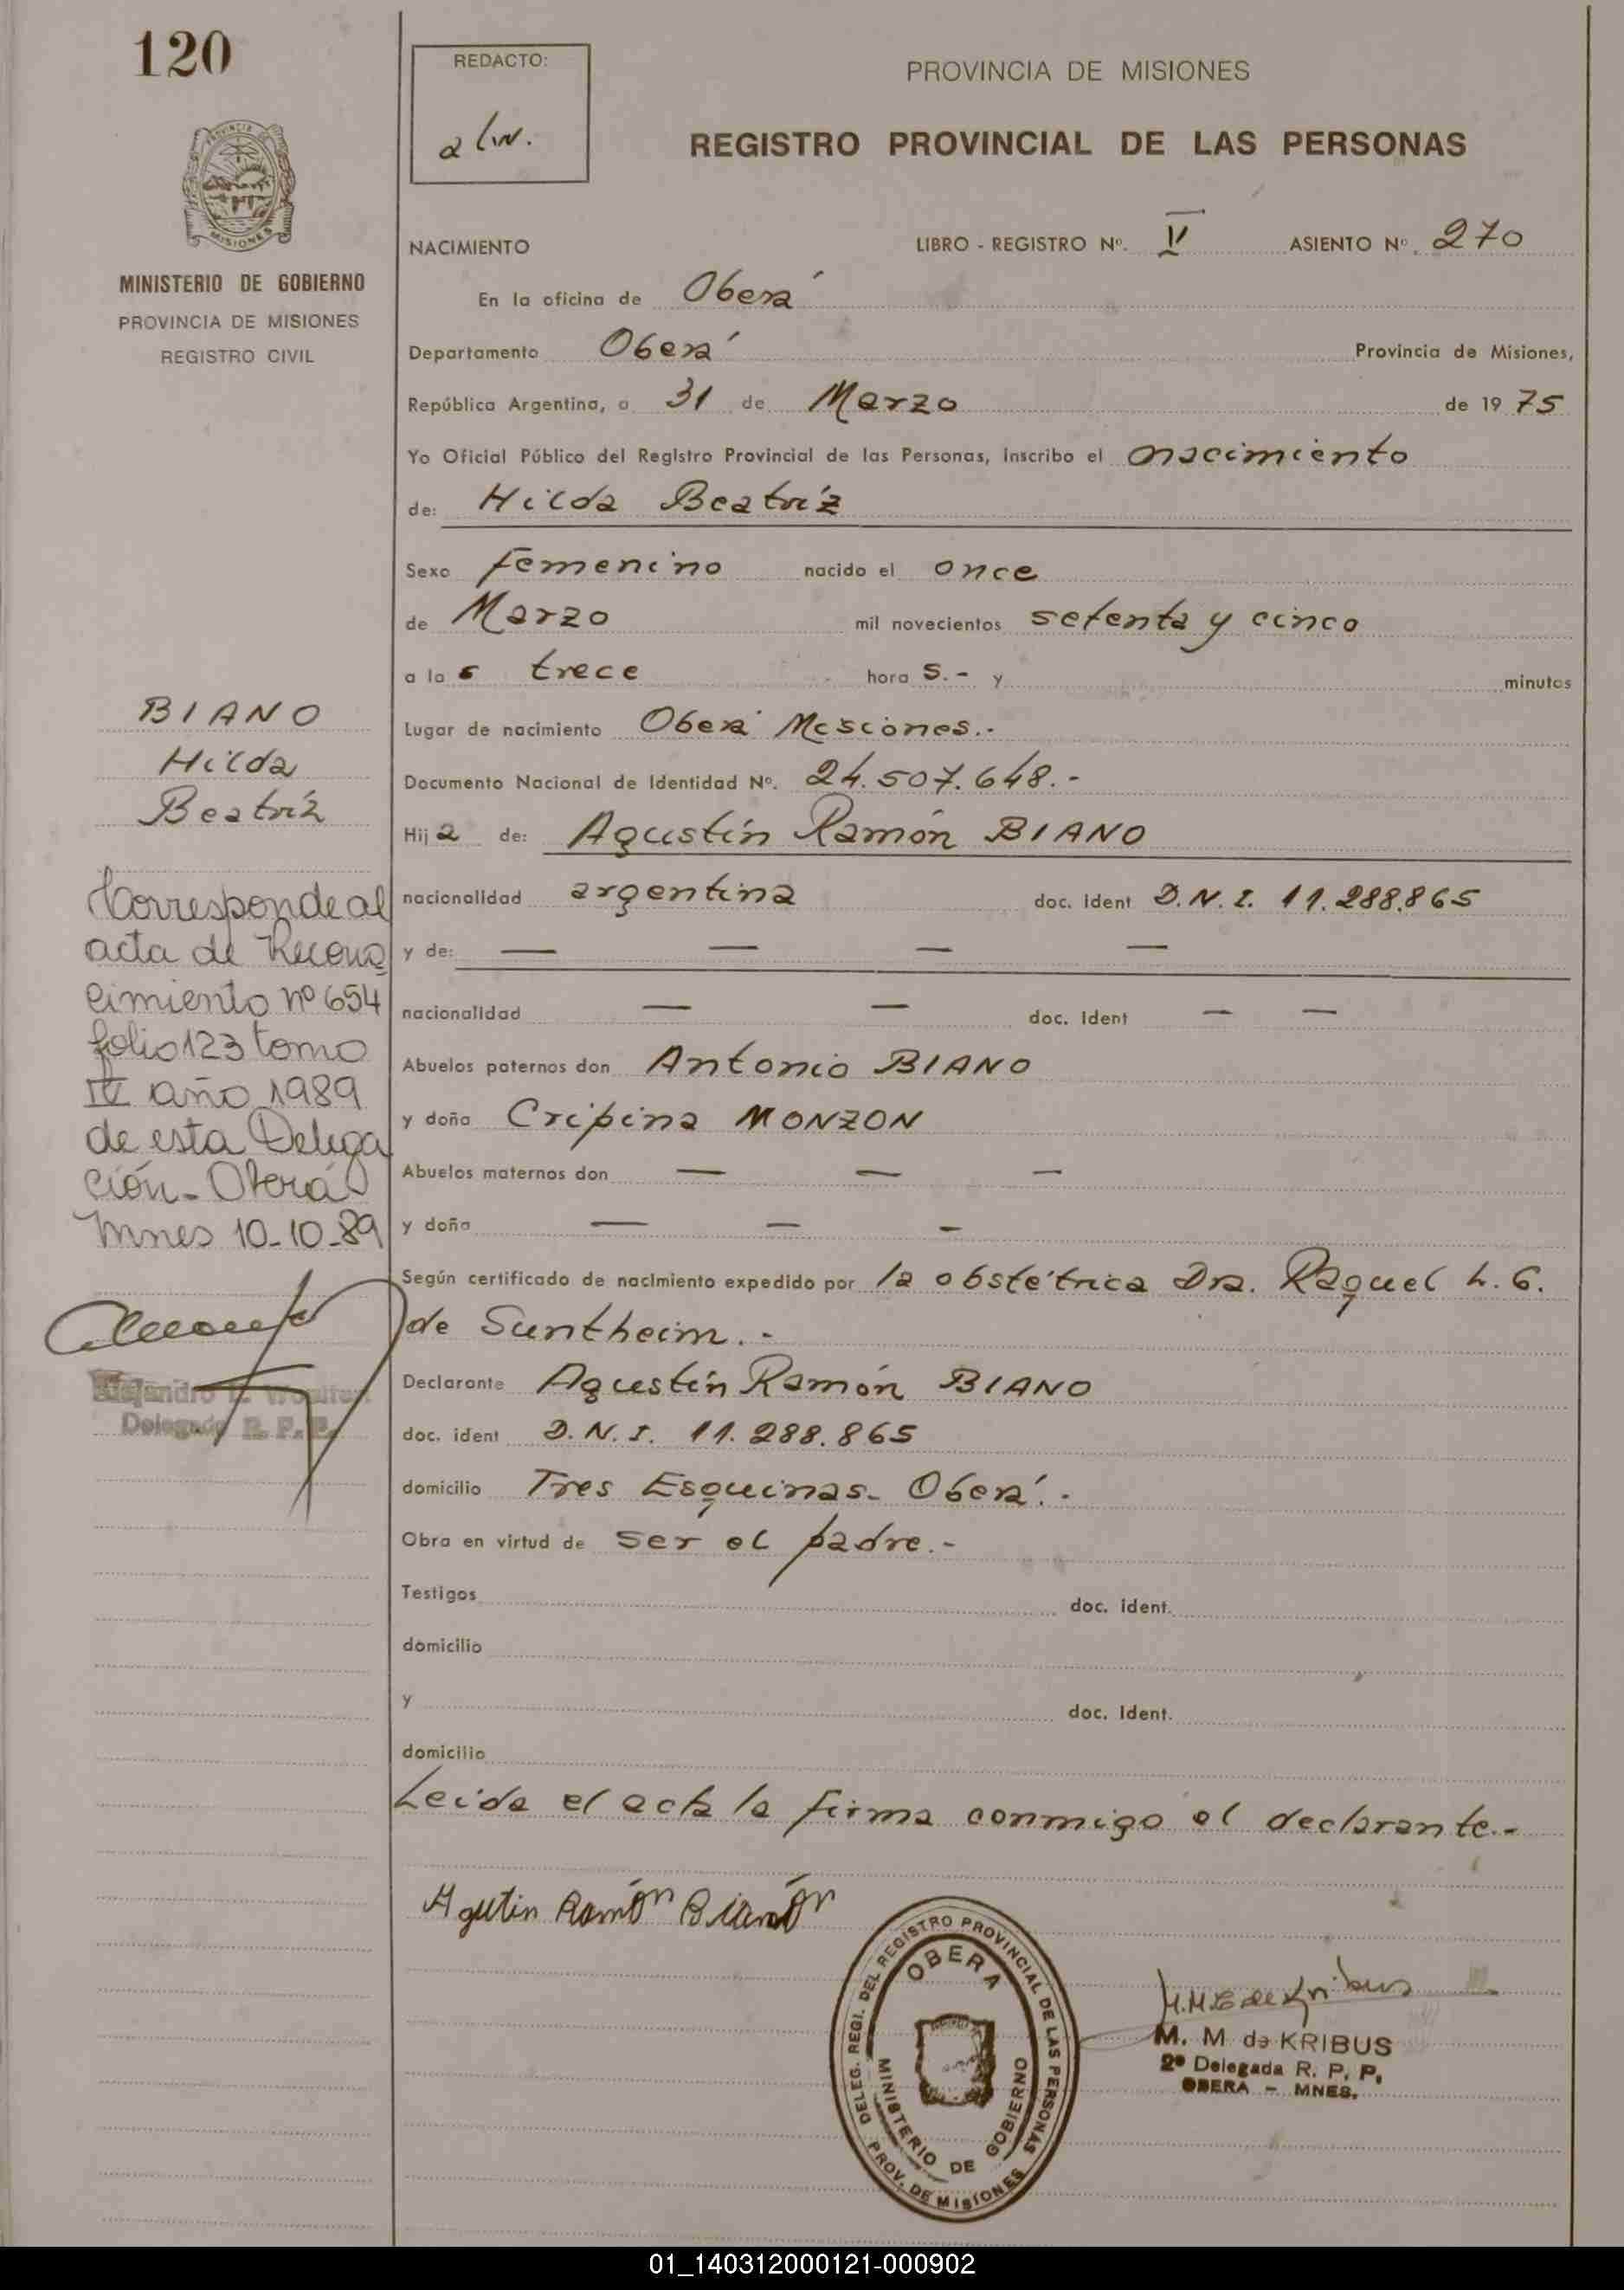 120
REDACTO:
PROVINCIA DE MISIONES
REGISTRO PROVINCIAL DE LAS PERSONAS
PROVINCIA DE
MISIONES
MINISTERIO DE GOBIERNO
PROVINCIA DE MISIONES
REGISTRO CIVIL
NACIMIENTO LIBRO - REGISTRO Nº. II ASIENTO Nº. 270
En la oficina de Oberá
Departamento Oberá Provincia de Misiones,
República Argentina, a 31 de Marzo de 19 75
Yo Oficial Público del Registro Provincial de las Personas, inscribo el nacimiento
de: Hilda Beatríz
Sexo femenino nacido el once
de Marzo mil novecientos setenta y cinco
a la s trece hora s.- y minutos
Lugar de nacimiento Oberá Misiones.-
Documento Nacional de Identidad Nº. 24.507.648.-
Hij a de: Agustín Ramón BIANO
nacionalidad argentina doc. ident D.N.I. 11.288.865
y de: — — — —
nacionalidad — — doc. ident — —
Abuelos paternos don Antonio BIANO
y doña Cripina MONZON
Abuelos maternos don — — —
y doña — — -
Según certificado de nacimiento expedido por la obstétrica Dra. Raquel L. G.
de Suntheim.-
Declarante Agustín Ramón BIANO
doc. ident D.N.I. 11.288.865
domicilio Tres Esquinas- Oberá.-
Obra en virtud de ser el padre.-
Testigos doc. ident.
domicilio
y doc. ident.
domicilio
Leida el acta la firma conmigo el declarante.-
BIANO
Hilda
Beatríz
Corresponde al
acta de Recono
cimiento nº 654
folio 123 tomo
IV año 1989
de esta Delega
ción- Oberá
Mnes 10-10-89
Alejandro
Delegado R. P. P.
Agutin Ramón Bianó
DELEG. REGI. DEL REGISTRO PROVINCIAL DE LAS PERSONAS
OBERA
MINISTERIO DE GOBIERNO
PROV. DE MISIONES
M.M. de Kribus
M. M de KRIBUS
2º Delegada R. P. P.
OBERA - MNES.
01_140312000121-000902